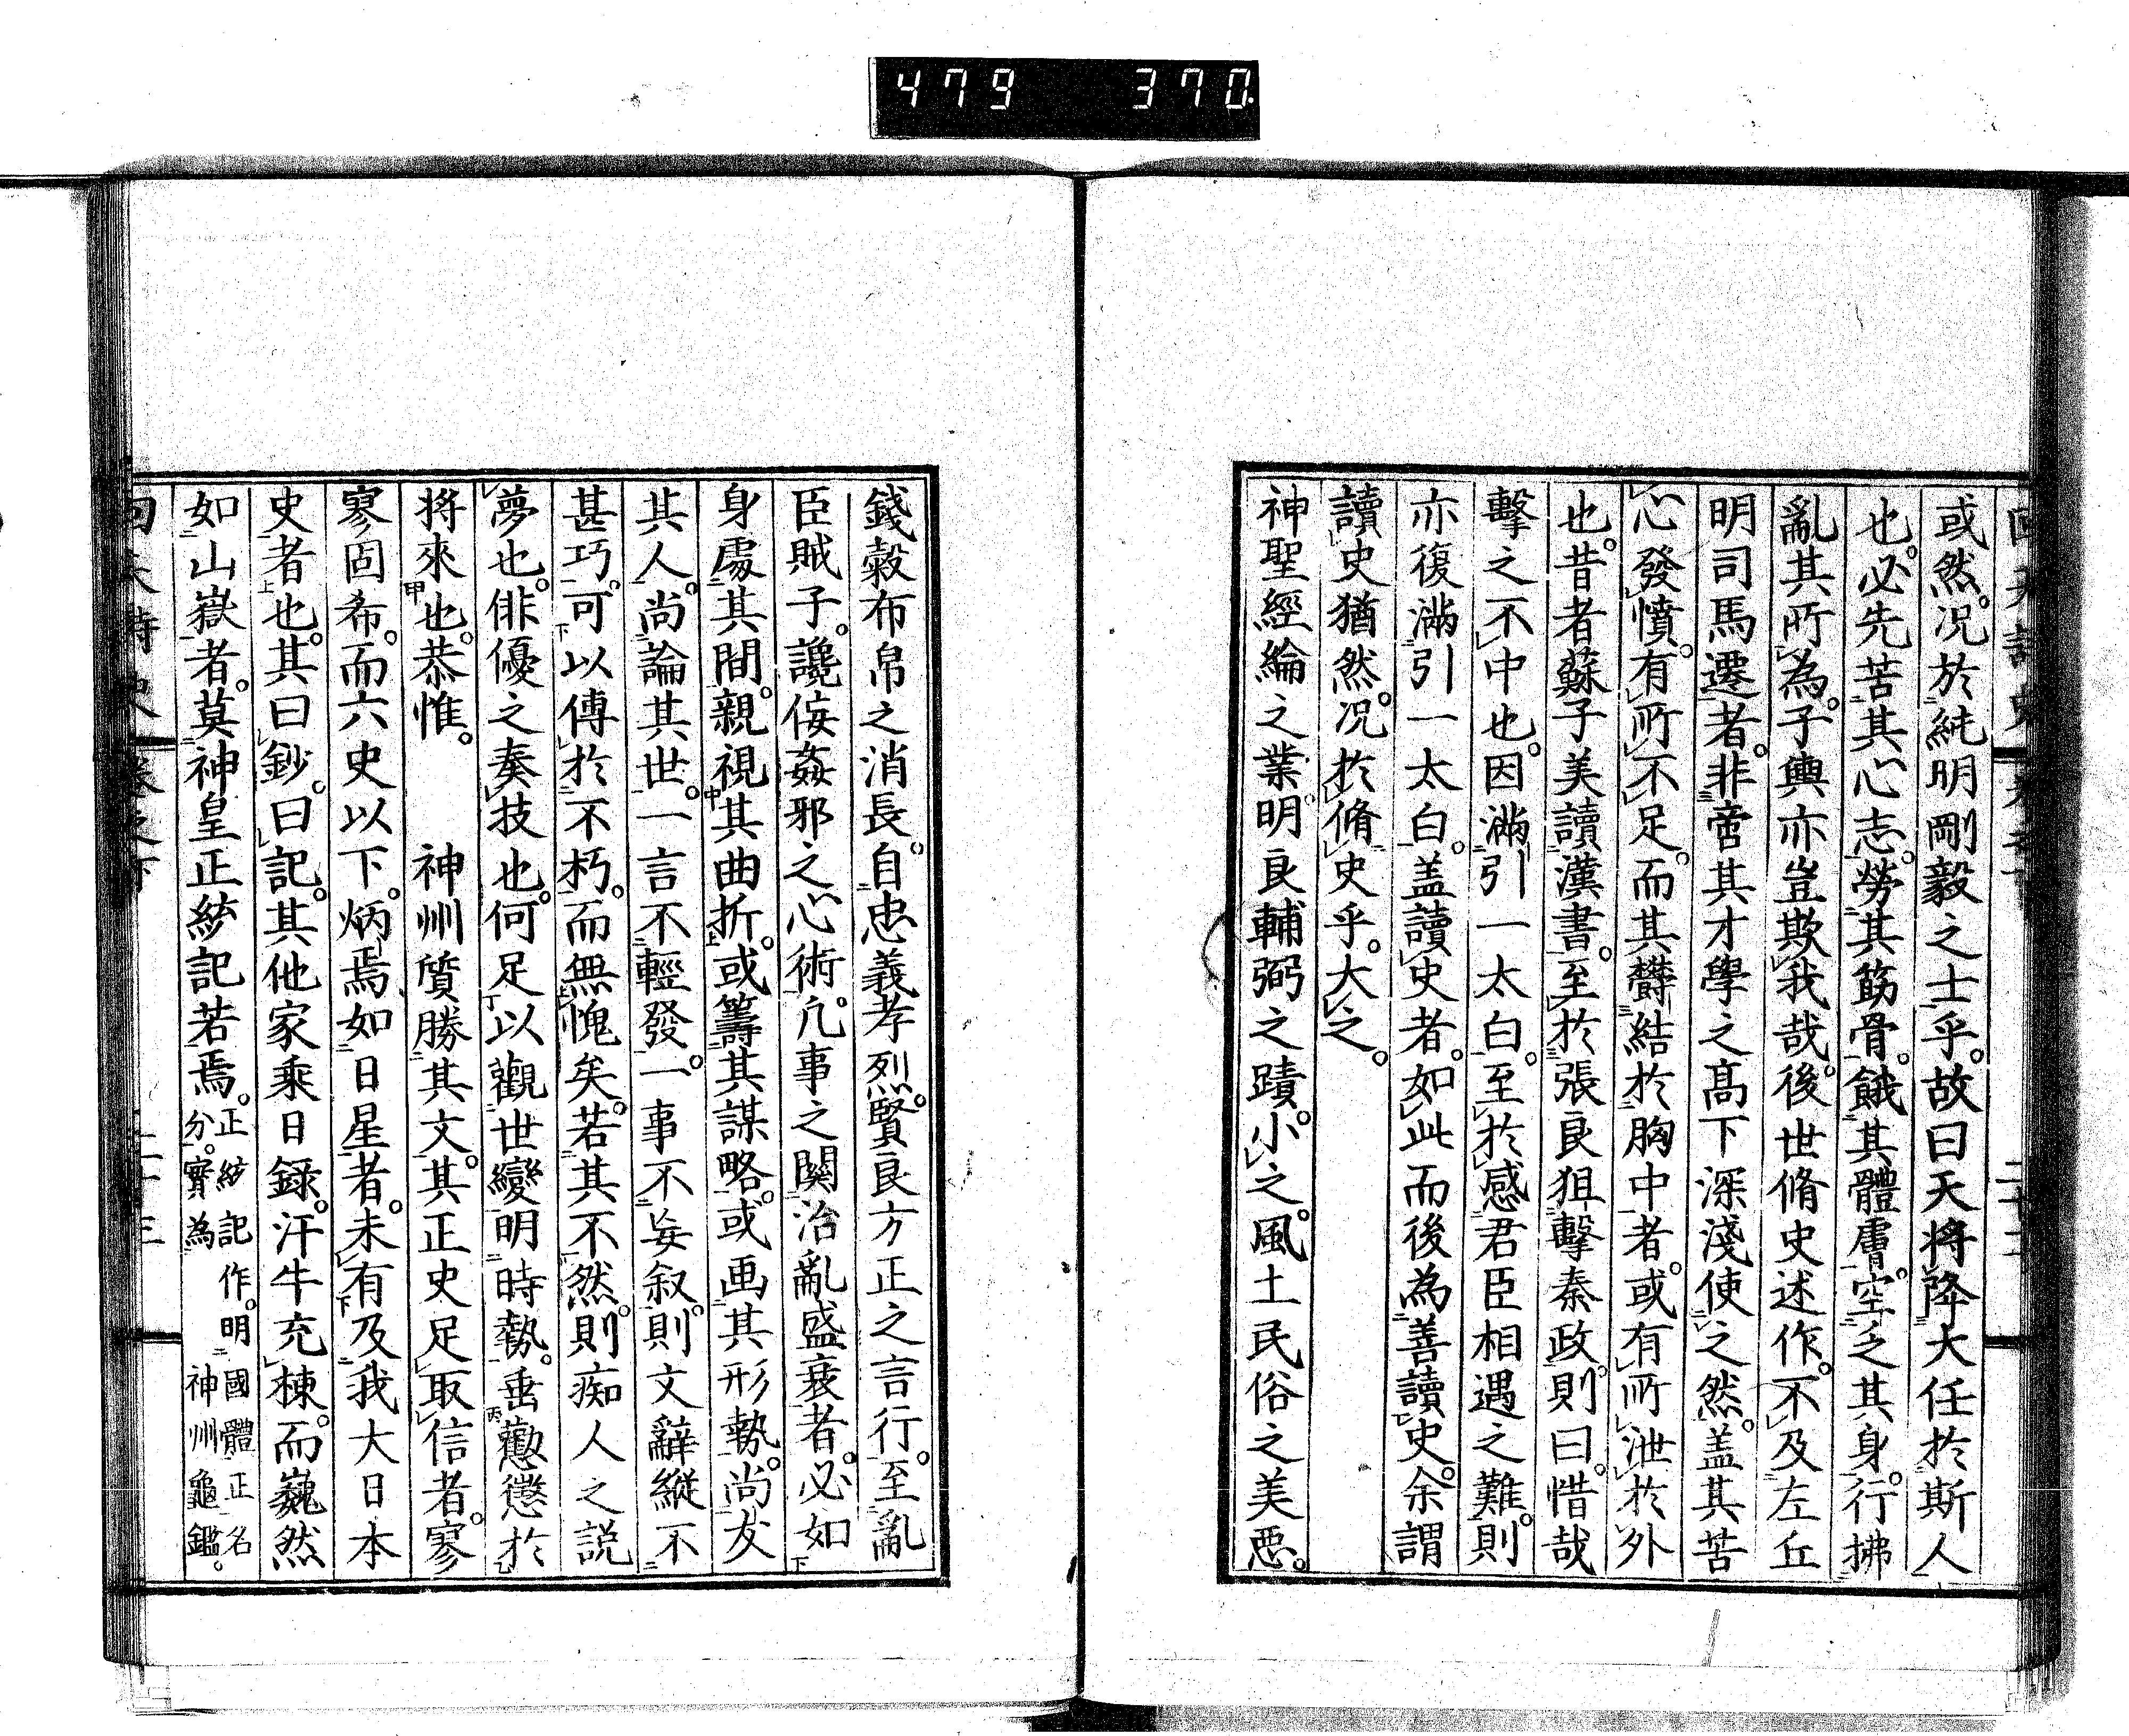 479 370
或然。况於純明剛毅之士乎。故曰天將降大任於斯人
也。必先苦其心志。勞其筋骨。餓其體膚。空乏其身。行拂
亂其所為。子輿亦豈欺我哉。後世脩史述作。不及左丘
明司馬遷者。非啻其才學之高下深淺使之然。盖其苦
心發憤。有所不足。而其欝結於胸中者。或有所泄於外
也。昔者蘇子美讀漢書。至於張良狙擊秦政。則曰。惜哉
擊之不中也。因滿引一太白。至於感君臣相遇之難。則
亦復滿引一太白。盖讀史者。如此而後為善讀史。余謂
讀史猶然。况於脩史乎。大之。
神聖經綸之業。明良輔弼之蹟。小之。風土民俗之美惡。
錢穀布帛之消長。自忠義孝烈。賢良方正之言行。至亂
臣賊子。讒佞姦邪之心術。凡事之關治亂盛衰者。必如
身處其間。親視其曲折。或籌其謀略。或画其形勢。尚友
其人。尚論其世。一言不輕發。一事不妄叙。則文辭縱不
甚巧。可以傳於不朽。而無愧矣。若其不然。則痴人之説
夢也。俳優之奏技也。何足以觀世變明時勢。垂懲於
將來也。恭惟。 神州質勝其文。其正史足取信者。寥
寥固希。而六史以下。炳焉如日星者。未有及我大日本
史者也。其曰鈔。曰記。其他家乘日録。汗牛充棟。而巍然
如山嶽者。莫神皇正統記若焉。正統記作。明國體正名
分。實為 神州龜鑑。